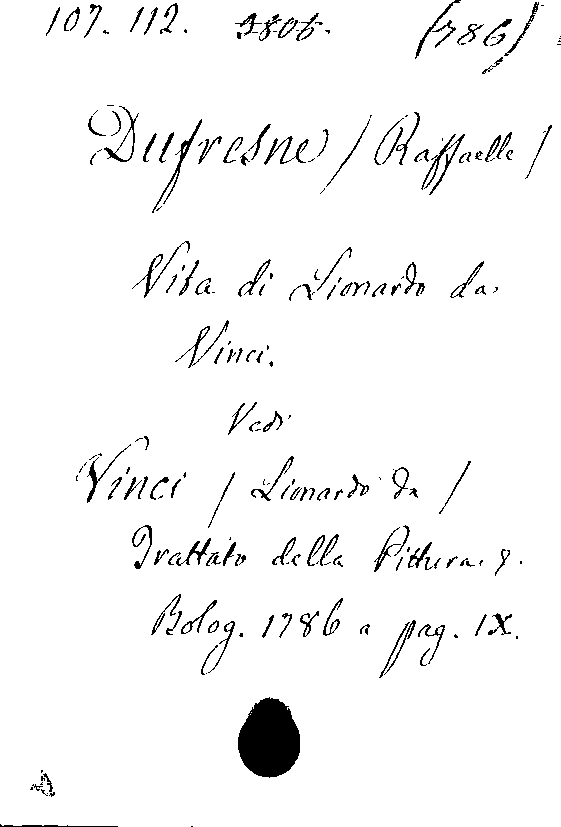 107. 112. 3806. (786)
Dufresne / Raffaelle /
Vita di Lionardo da
Vinci.
Vedi
Vinci / Lionardo da /
Trattato della Pittura. &.
Bolog. 1786 a pag. IX.